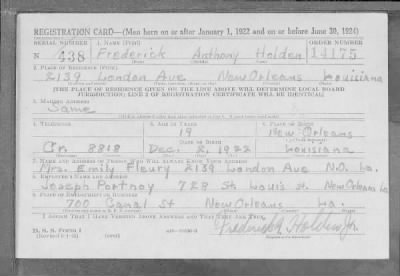 REGISTRATION CARD—(Men born on or after January 1, 1922 and on or before June 30, 1924)
SERIAL NUMBER 1. NAME (Print) ORDER NUMBER
N 438 Frederick Anthony Holden 14175
(First) (Middle) (Last)
2. PLACE OF RESIDENCE (Print)
2139 London Ave New Orleans Louisiana
[THE PLACE OF RESIDENCE GIVEN ON THE LINE ABOVE WILL DETERMINE LOCAL BOARD
JURISDICTION; LINE 2 OF REGISTRATION CERTIFICATE WILL BE IDENTICAL]
3. MAILING ADDRESS
Same
4. TELEPHONE 5. AGE IN YEARS 6. PLACE OF BIRTH
19 New Orleans
DATE OF BIRTH
Cr. 8818 Dec. 2, 1922 Louisiana
7. NAME AND ADDRESS OF PERSON WHO WILL ALWAYS KNOW YOUR ADDRESS
Mrs. Emily Fleury 2139 London Ave N.O. La.
8. EMPLOYER'S NAME AND ADDRESS
Joseph Portnoy 728 St. Louis St. New Orleans La
9. PLACE OF EMPLOYMENT OR BUSINESS
700 Canal St New Orleans La.
I AFFIRM THAT I HAVE VERIFIED ABOVE ANSWERS AND THAT THEY ARE TRUE.
D. S. S. Form 1
Frederick A Holden Jr.